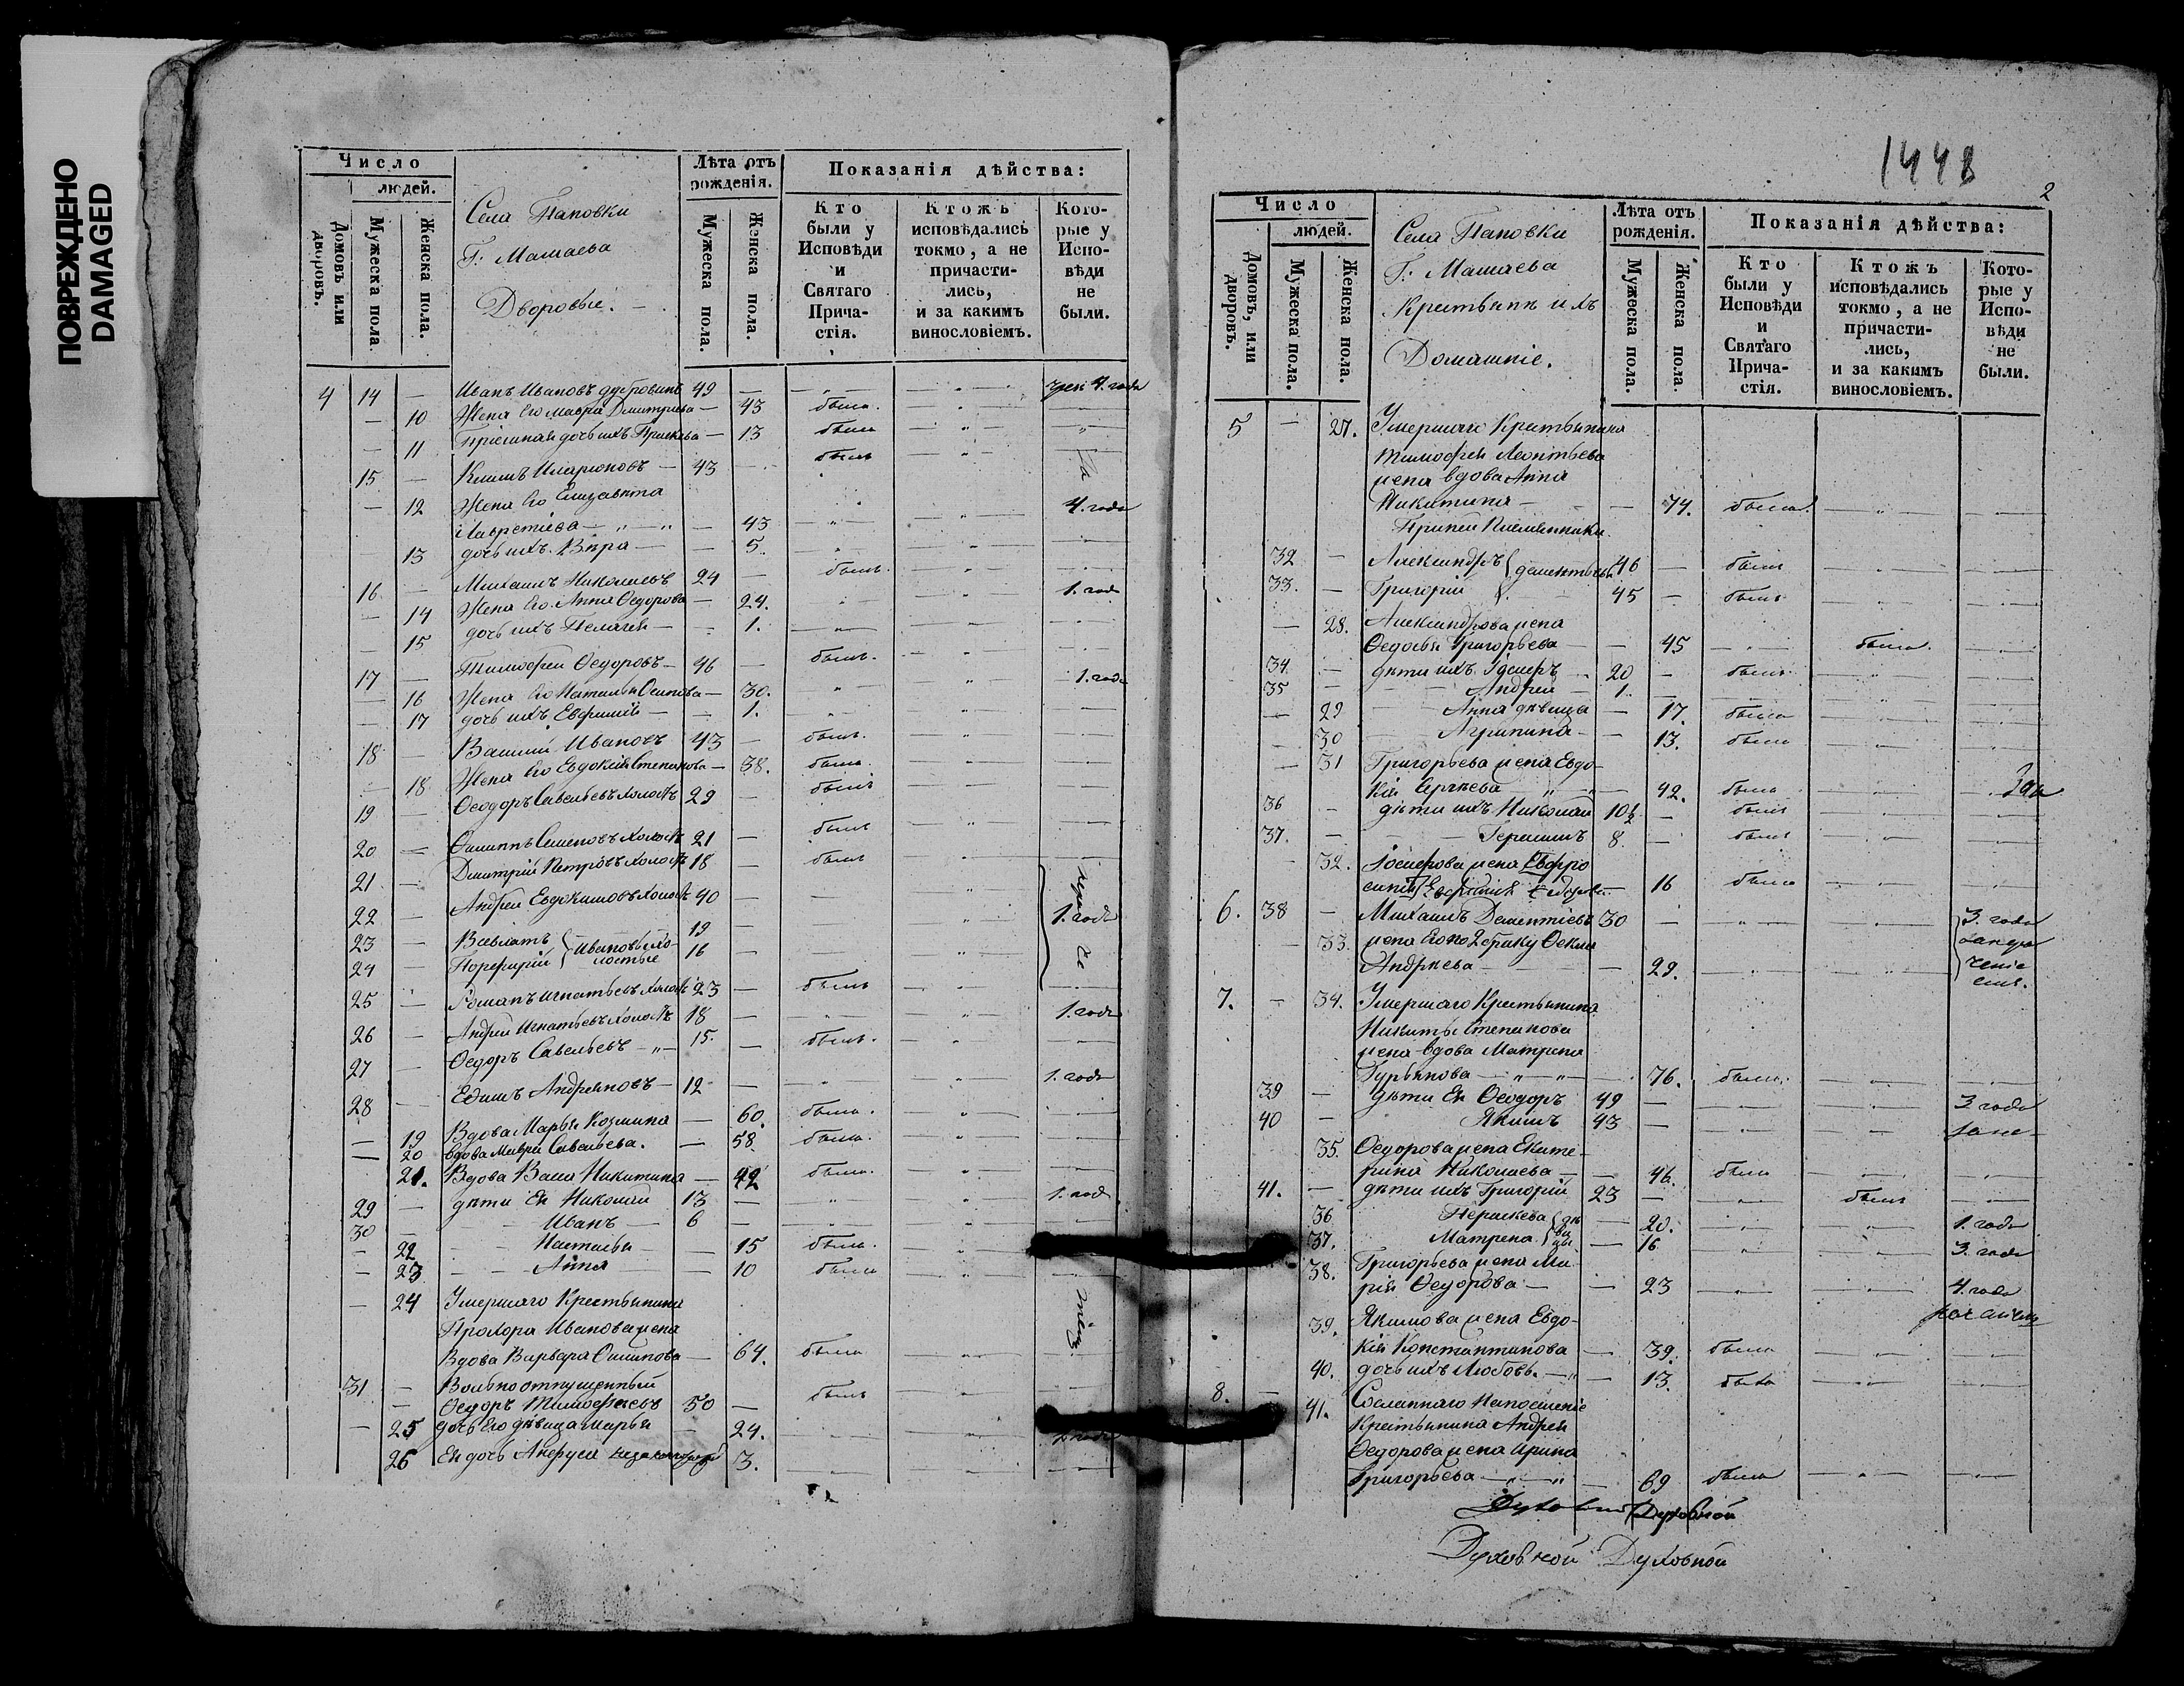 ПОВРЕЖДЕНО
DAMAGED
Число
людей.
Домовъ или дворовъ.
Мужеска пола.
Женска пола.
Села Паповки
Г. Машаева
Дворовые.
Лѣта отъ рожденія.
Мужеска пола.
Женска пола.
Показанія дѣйства:
Кто были у Исповѣди и Святаго Прича-стія.
Ктожъ исповѣдались токмо, а не причасти-лись, и за какимъ винословіемъ.
Кото-рые у Испо-вѣди не были.
4 14 — Иванъ Ивановъ 49 — — 4. года
— 10 Жена Его Мавра Дмитриева — 43 была.
— 11 Пріемная дочь ихъ — 13 была
15 — Климъ Иларионовъ — 43 — былъ
— 12 Жена Его Елизавета
Лаврентіева — 43 4. года
— 13 дочь ихъ Вѣра — — 5.
16 — Михаилъ Николаевъ 24 — былъ.
— 14 Жена Его Анна Ѳедорова — 24. 1. годъ
— 15 дочь ихъ Пелагея — 1.
17 — Тимофей Ѳедоровъ — 46 — былъ.
— 16 Жена Его Наталья Осипова — 30. 1. годъ
— 17 дочь ихъ Евфимія — — 1.
18 — Василій Ивановъ 43 — былъ.
— 18 Жена Его Евдокія Степанова — 38. была.
19 — Ѳеодоръ Савельевъ холостъ 29 — былъ
20 — Филиппъ Семеновъ холостъ 21 — былъ
21 — Дмитрій Петровъ холостъ 18 — былъ
22 — Андрей Евдокимовъ холостъ 40 — — 1. годъ
23 — 19 —
24 — Порфирій Ивановы холостые 16 —
25 — Романъ Игнатьевъ холостъ 23 — былъ
26 — Андрей Игнатьевъ холостъ 18 — 1. годъ
27 — Ѳедоръ Савельевъ — 15. — былъ.
28 — Андреяновъ — 12 — 1. годъ
— 19 Вдова Марья Козмина — 60. была.
— 20 вдова Мавра Савельева. — 58. была.
— 21. Вдова Васса Никитина — 42 была.
29 — дѣти Ея Николай 13 — 1. годъ
30 — Иванъ — 6 —
— 22 Наталья — — 15 была.
— 23 Анна — 10 была
— 24 Умершаго Крестьянина
Прохора Иванова жена
Вдова Варвара Филипова — 64. была
31 — Вольноотпущенный
Ѳедоръ Тимофѣевъ 50 — былъ
— 25 дочь Его дѣвица Марья — 24.
26 Ея дочь 3.
1448
2
Число
людей.
Домовъ, или дворовъ.
Мужеска пола.
Женска пола.
Села Паповки
Г. Машаева
Крестьяне и ихъ
Домашніе.
Лѣта отъ рожденія.
Мужеска пола.
Женска пола.
Показанія дѣйства:
Кто были у Исповѣди и Святаго Прича-стія.
Ктожъ исповѣдались токмо, а не причасти-лись, и за какимъ винословіемъ.
Кото-рые у Испо-вѣди не были.
5 — 27. Умершаго Крестьянина
Тимофея Леонтьева
жена вдова Анна
Никитина — — 74. была.
При ней Племянники
32 — Александръ Дементьевы 46 — былъ
33. — Григорій 45 — былъ
— 28. Александрова жена
Ѳедосья Григорьева — 45 — была.
34. — дѣти ихъ 20 — былъ
35 — Андрей — 1. —
— 29 Анна дѣвица — 17. была
— 30 Агрипина — — 13. была
— 31 Григорьева жена Евдо-
кія Сергѣева — 42. была
36 — дѣти ихъ Николай 10½ — былъ
37. — Герасимъ 8. — былъ
— 32. жена Евфро
синія — 16 была
6. 38 — Михаилъ Дементіевъ 30 — 3. года
— 33. жена Его по 2 браку Ѳекла
Андреева — — 29.
7. — 34. Умершаго Крестьянина
Никиты Степанова
жена вдова Матрена
Гурьянова — 76. была.
39 — дѣти Ея Ѳеодоръ 49 — 3 года
40 — Якимъ 43 —
35. Ѳедорова жена Екате-
рина Николаева — — 46. была
41. — дѣти ихъ Григорій 23 — былъ
36 дѣ — 20. 1. годъ
37. Матрена вицы — 16 3. года
38. Григорьева жена Ма-
рія Ѳедорова — — 23 4. года
39. Якимова жена Евдо-
кія Константинова — 39. была
40. дочь ихъ Любовь. — — 13. была
8. — 41. Сосланнаго На поселеніе
Крестьянина Андрея
Ѳедорова жена Ирина
Григорьева — — 69 была
Духовной
Духовной Духовной